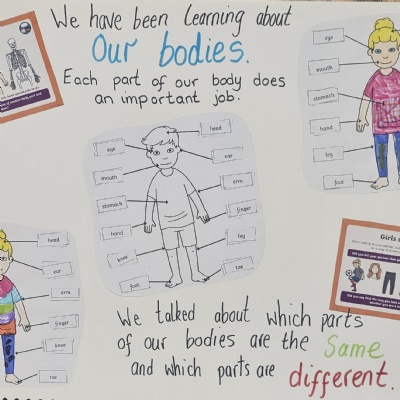 We have been learning about
Our bodies.
Each part of our body does
an important job.
eye
mouth
stomach
hand
leg
foot
head
eye
ear
mouth
arm
stomach
finger
hand
leg
knee
foot
toe
head
ear
arm
finger
knee
toe
Girls
We talked about which parts
of our bodies are the same
and which parts are different.